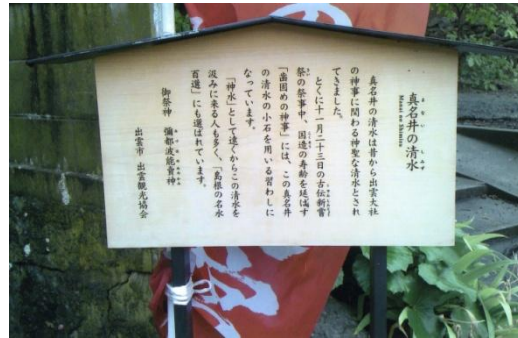 真名井の清水
まないのしみず
Manai no Shimizu
真名井の清水は昔から出雲大社
の神事に関わる神聖な清水とされ
てきました。
とくに十一月二十三日の古伝新嘗
祭の祭事中、国造の寿齢を延ばす
「歯固めの神事」には、この真名井
の清水の小石を用いる習わしに
なっています。
「神水」として遠くからこの清水を
汲みに来る人も多く、「島根の名水
百選」にも選ばれています。
御祭神 彌都波能賣神
出雲市 出雲観光協会